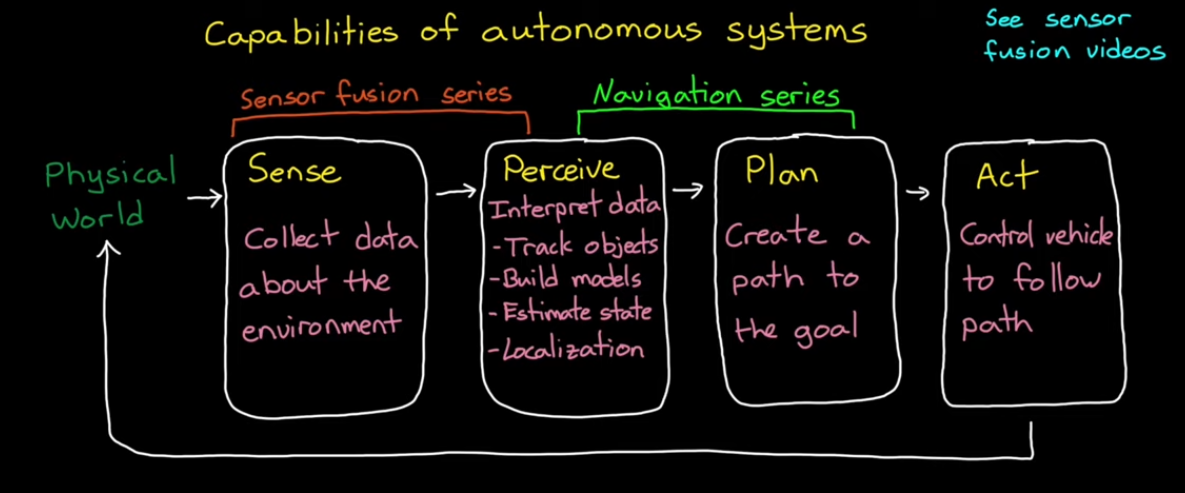 Capabilities of autonomous systems
See sensor
fusion videos
Sensor fusion series
Navigation series
Physical
World
Sense
Collect data
about the
environment
Perceive
Interpret data
-Track objects
-Build models
-Estimate state
-Localization
Plan
Create a
path to
the goal
Act
Control vehicle
to follow
path